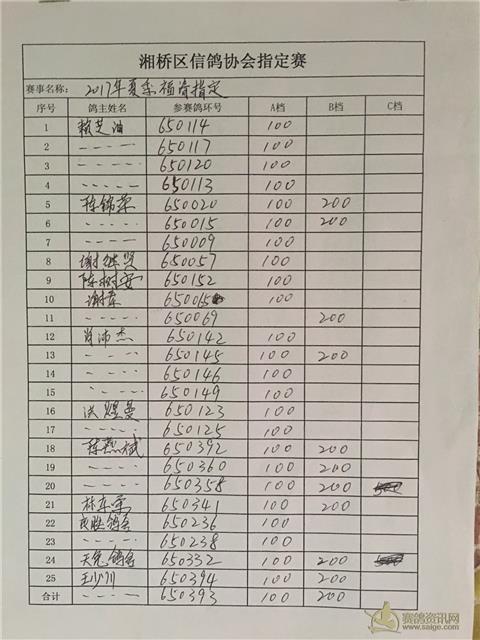 湘桥区信鸽协会指定赛
赛事名称: 2017年夏季福资指定
序号 鸽主姓名 参赛鸽环号 A档 B档 C档
1 赖芝油 650114 100
2 ---- 650117 100
3 ---- 650120 100
4 ----- 650113 100
5 陈锦荣 650020 100 200
6 ----- 650015 100 200
7 ---- 650009 100
8 谢继贤 650057 100
9 陈树安 650152 100
10 谢东 650065 100
11 ----- 650069 200
12 肖沛杰 650142 100
13 ---- 650145 100 200
14 ---- 650146 100
15 ---- 650149 100
16 洪煜曼 650123 100
17 ----- 650125 100
18 陈燕斌 650392 100 200
19 ---- 650360 100 200
20 ---- 650358 100 200
21 林立学 650341 100 200
22 鸽舍 650236 100
23 ---- 650238 100
24 天兔鸽舍 650352 100 200
25 王少川 650394 100 200
合计 ----- 650393 100 200
赛鸽资讯网
www.saige.com